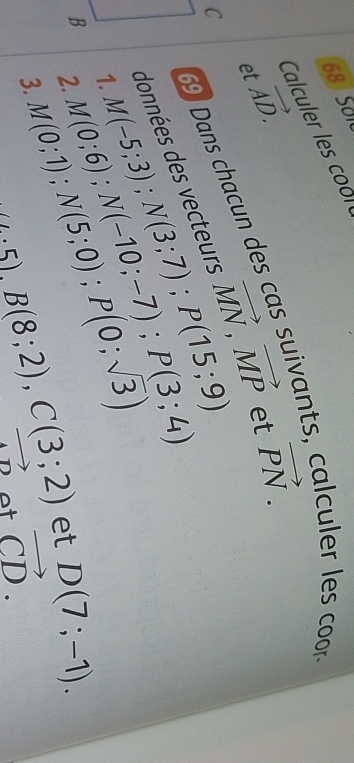 C
B
68
Calculer les
et AD.
69 Dans chacun des cas suivants, calculer les coor-
données des vecteurs MN, MP et PN.
1. M(−5;3) ; N(3;7) ; P(15;9)
2. M(0;6) ; N(−10;−7) ; P(3;4)
3. M(0;1) ; N(5;0) ; P(0;√3)
;5), B(8;2), C(3;2) et D(7;−1).
et CD.